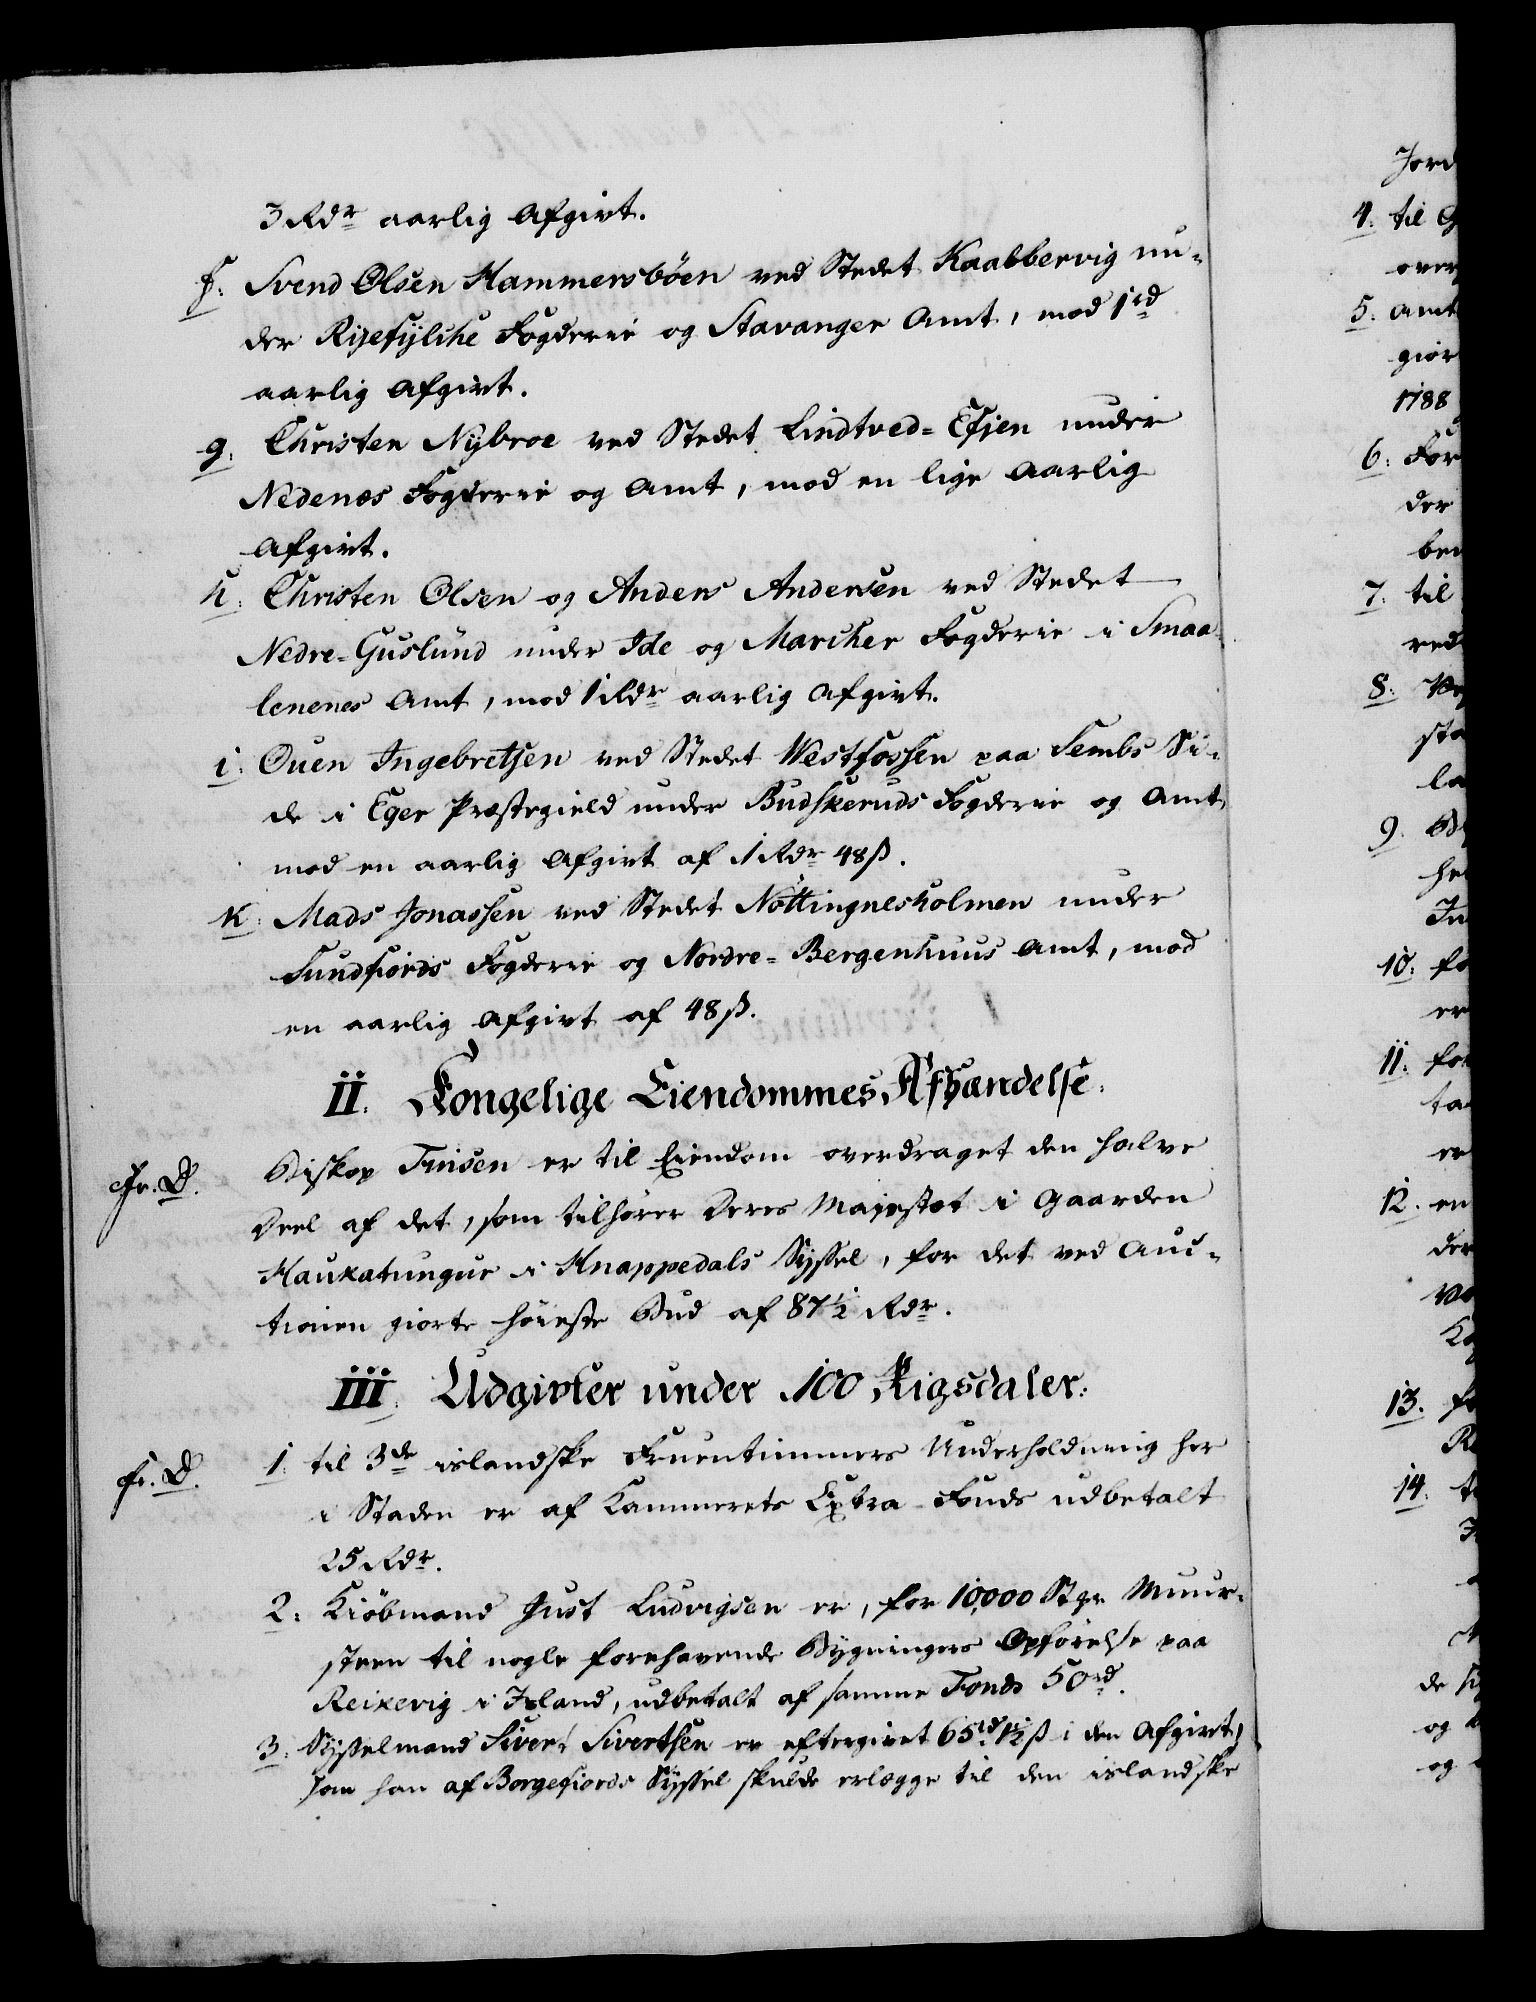 3 Rdr aarlig Afgivt.
f. Svend Olsen Hammersböen ved Stedet Kaabbervig un-
der Rijefylche Fogderie og Stavanger Amt, mod 1 rd
aarlig Afgivt.
g. Christen Nybroe ved Stedet Lindtved=Efjen under
Nedenes Fogderie og Amt, mod en lige aarlig
Afgivt.
h. Christen Olsen og Anders Andersen ved Stedet
Nedre=Guslund under Ide og Marcher Fogderie i Smaa-
lenenes Amt, mod 1 Rdr aarlig Afgivt.
i. Ouen Ingebretsen ved Stedet Westfossen paa Sembs Si-
de i Eger Præstegield under Budskeruds Fogderie og Amt
mod en aarlig Afgivt af 1 Rdr 48 ß.
k. Mads Jonassen ved Stedet Nöttingnesholmen under
Sundfiords Fogderie og Nordre=Bergenhuus Amt, mod
en aarlig Afgivt af 48 ß.
II. Kongelige Eiendommes Afhændelse.
Jr. D. Biskop Finsen er til Eiendom overdraget den halve
Deel af det, som tilhører Deres Majestæt i Gaarden
Haukatungur i Knappedals Syssel, for det ved Auc-
tionen giorte høieste Bud af 87½ Rdr.
III. Udgivter under 100 Rigsdaler.
Jr. D. 1. til 3de islandske Fruentimmers Underholdning her
i Staden er af Kammerets Extra Fonds udbetalt
25 Rdr.
2. Kiöbmand Just Ludvigsen er, for 10,000 Stkr Muur-
steen til nogle forehavende Bygningers Opførelse paa
Reikevig i Island, udbetalt af samme Fonds 50 rd.
3. Sysselmand Sivert Sivertsen er eftergivet 65 rd 1½ ß i den Afgivt,
som han af Borgefiords Syssel skulde erlægge til den islandske
Jord
4. til
over
5. Amt
giør
1788
6. For
der
ben
7. til
red
8.
sta
la
9.
10. for
er
11. for
ta
er
12. en
der
13.
14.
de
og
og